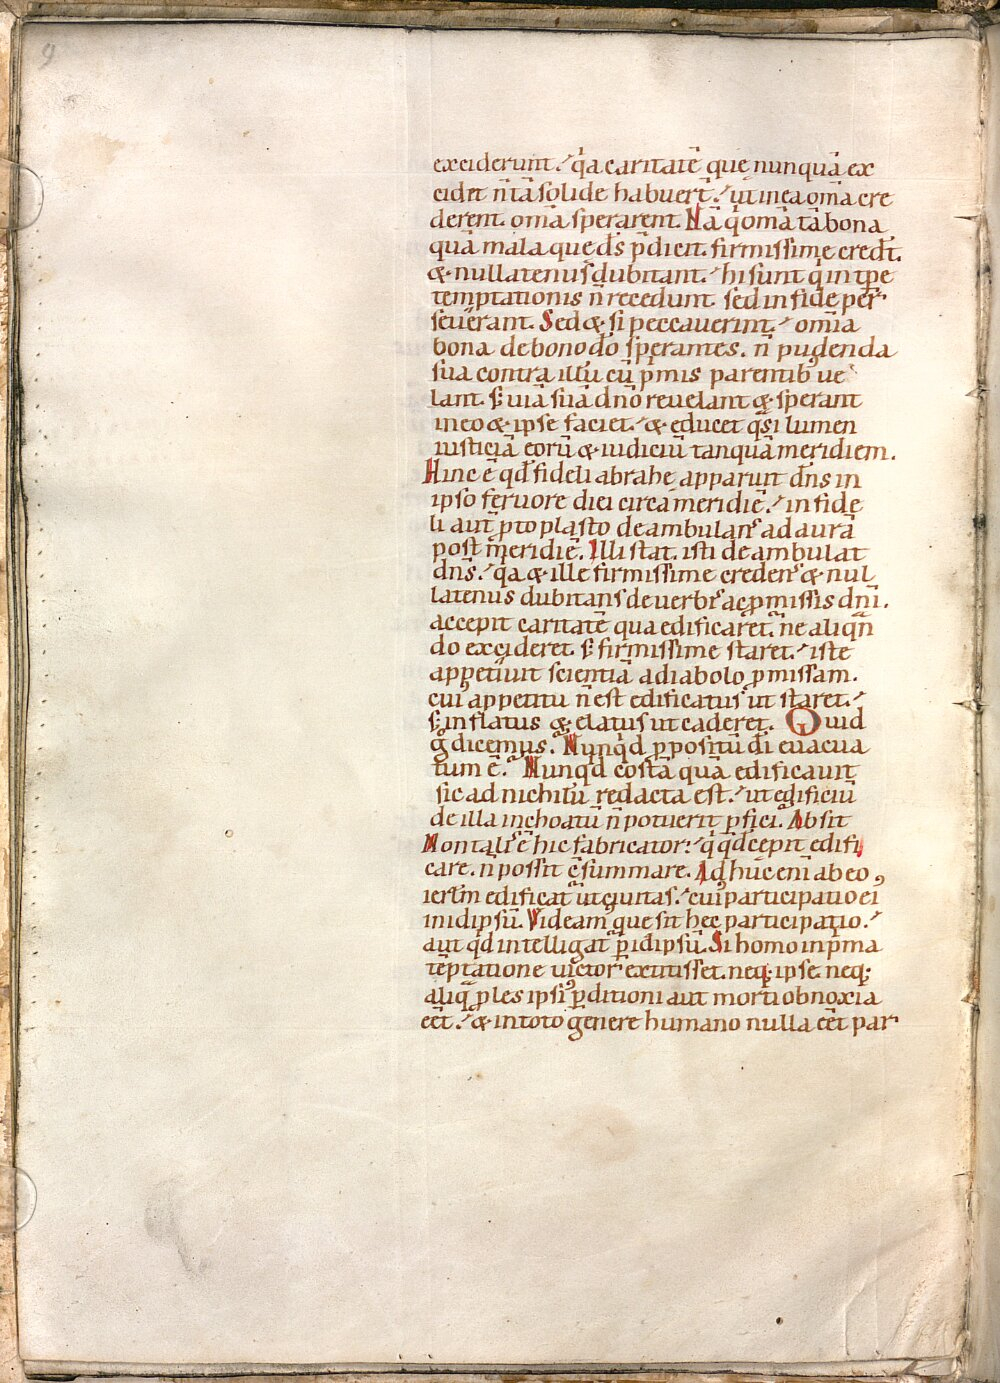 9
exciderunt. q̇a caritatē quę nunquā ex
cidet n̄ tā solide habuer̄t. ut in ea om̄a cre
derent. om̄a sperarent. Nā q̇ om̄a tā bona
quā mala quę d̄s p̄dicit. firmissime credt̄.
& nullatenus dubitant. hi sunt q̇ in tp̄e
temptationis n̄ recedunt. sed in fide per
seuerant. Sed & si peccauerint. omīa
bona de bono dō sperantes. n̄ pudenda
sua contra illū cū p̄mis parentib; ue
lant. s; uiā suā dn̄o reuelant & sperant
in eo & ipse faciet. & educet q̇si lumen
iusticiā eorū & iudiciū tanquā meridiem.
Hinc ē qd̄ fideli abrahę apparuit dn̄s in
ipso feruore diei circa meridiē. in fide
li aut̄ ptoplasto deambulans ad aurā
post meridiē. Illi stat. isti deambulat
dn̄s. q̇a & ille firmissime credens & nul
latenus dubitans de uerbis ac pmissis dn̄i.
accepit caritatē qua edificaret. ne aliqn̄
do excideret. s; firmissime staret. iste
appetiuit scientiā a diabolo pmissam.
cui' appetitu n̄ est edificatus ut staret.
s; inflatus & elatus ut caderet. Quid
g̊ dicemus. Nunqd̄ ppositū di̅ euacua
tum ē. Nunqd̄ costā quā edificauit
sic ad nichilū redacta est. ut edificiū
de illa inchoatū n̄ potuerit pfici. Absit
Non talis ē hic fabricator. q̇ qd̄ cepit edifi
care. n̄ possit cōsummare. Adhuc enī ab eo
ierlm̄ edificat' ut ciuitas. cui' participatio ei'
in idipsū. Videam' que sit hec participatio.
aut qd̄ intelligat' p idipsū. Si homo in p̄ma
tēptatione uictor extitisset. neq; ipse neq;
aliq̇ ples ipsi' pditioni aut morti obnoxia
eēt. & in toto genere humano nulla eēt par